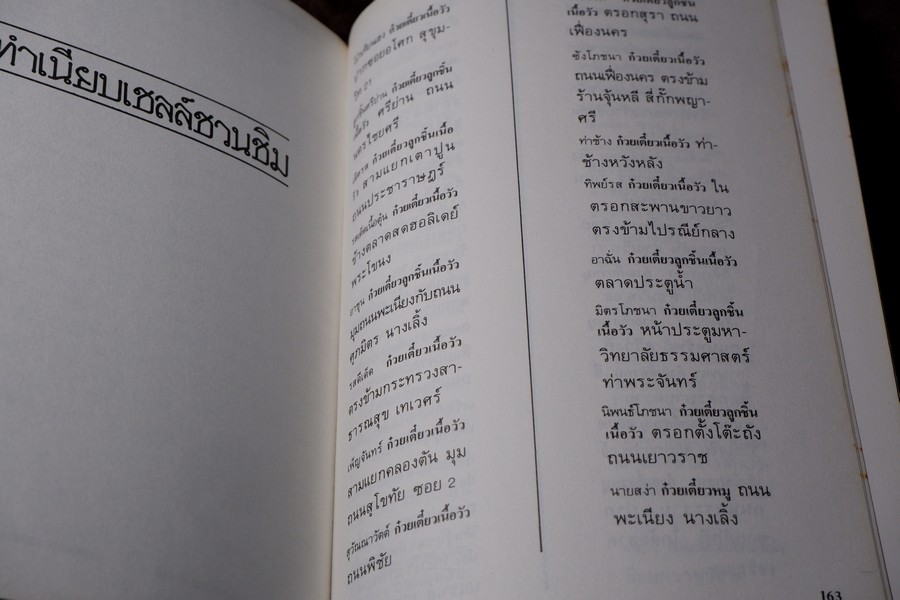 ทำเนียบเชลล์ชวนชิม
ก๋วยเตี๋ยวเนื้อวัว
ซอยอโศก สุขุม-
ก๋วยเตี๋ยวลูกชิ้น
ศรีย่าน ถนน
นครไชยศรี
ก๋วยเตี๋ยวลูกชิ้นเนื้อ
สามแยกเตาปูน
ถนนประชาราษฎร์
ก๋วยเตี๋ยวเนื้อวัว
ข้างตลาดสดฮอลิเดย์
พระโขนง
ก๋วยเตี๋ยวลูกชิ้นเนื้อวัว
มุมถนนพะเนียงกับถนน
ศุภมิตร นางเลิ้ง
รสดีเด็ด ก๋วยเตี๋ยวเนื้อวัว
ตรงข้ามกระทรวงสา-
ธารณสุข เทเวศร์
เพ็ญจันทร์ ก๋วยเตี๋ยวเนื้อวัว
สามแยกคลองตัน มุม
ถนนสุโขทัย ซอย 2
สุวัณณาวัตต์ ก๋วยเตี๋ยวเนื้อวัว
ถนนพิชัย
เนื้อวัว ตรอกสุรา ถนน
เฟื่องนคร
ซังโภชนา ก๋วยเตี๋ยวเนื้อวัว
ถนนเฟื่องนคร ตรงข้าม
ร้านจุ้นหลี สี่กั๊กพญา-
ศรี
ท่าช้าง ก๋วยเตี๋ยวเนื้อวัว ท่า-
ช้างหวังหลัง
ทิพย์รส ก๋วยเตี๋ยวเนื้อวัว ใน
ตรอกสะพานขาวยาว
ตรงข้ามไปรณีย์กลาง
อาฉั่น ก๋วยเตี๋ยวลูกชิ้นเนื้อวัว
ตลาดประตูน้ำ
มิตรโภชนา ก๋วยเตี๋ยวลูกชิ้น
เนื้อวัว หน้าประตูมหา-
วิทยาลัยธรรมศาสตร์
ท่าพระจันทร์
นิพนธ์โภชนา ก๋วยเตี๋ยวลูกชิ้น
เนื้อวัว ตรอกตั้งโต๊ะถัง
ถนนเยาวราช
นายสง่า ก๋วยเตี๋ยวหมู ถนน
พะเนียง นางเลิ้ง
163